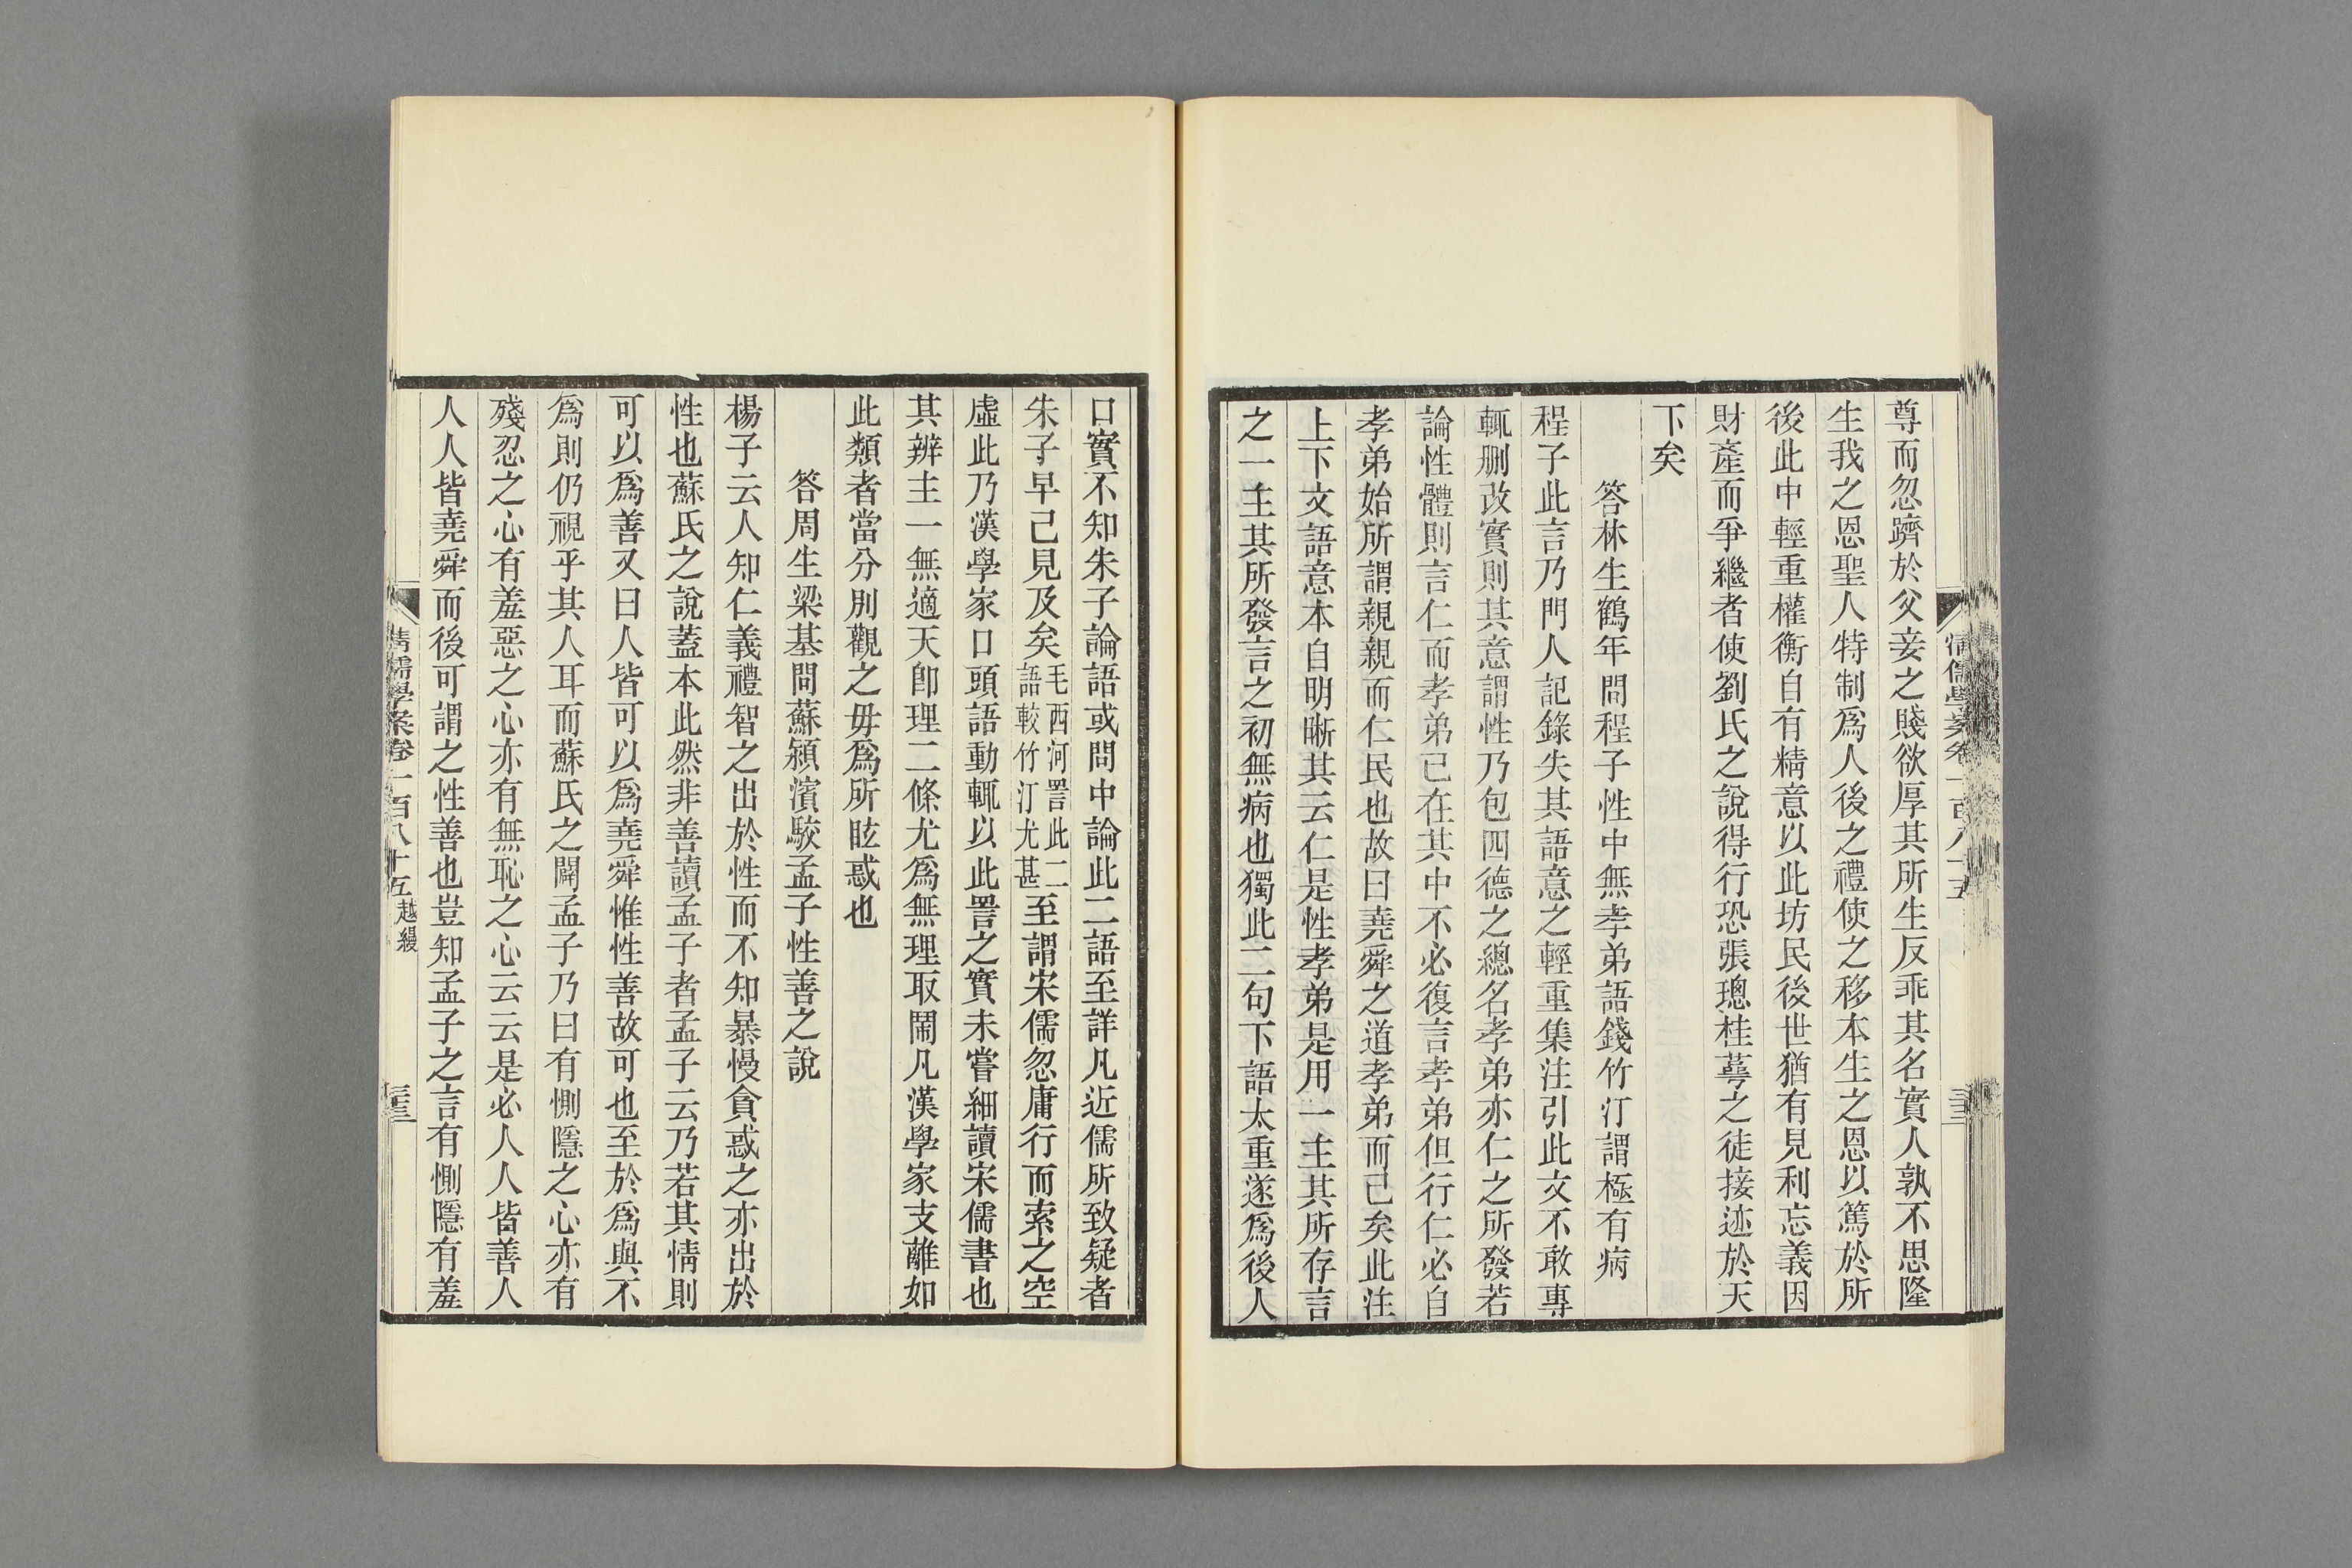 尊而忽躋於父妾之賤欲厚其所生反乖其名實人孰不思隆
生我之恩聖人特制爲人後之禮使之移本生之恩以篤於所
後此中輕重權衡自有精意以此坊民後世猶有見利忘義因
財產而爭繼者使劉氏之說得行恐張璁桂蕚之徒接迹於天
下矣
答林生鶴年問程子性中無孝弟語錢竹汀謂極有病
程子此言乃門人記錄失其語意之輕重集注引此文不敢專
輒刪改實則其意謂性乃包四德之總名孝弟亦仁之所發若
論性體則言仁而孝弟已在其中不必復言孝弟但行仁必自
孝弟始所謂親親而仁民也故曰堯舜之道孝弟而已矣此注
上下文語意本自明晣其云仁是性孝弟是用一主其所存言
之一主其所發言之初無病也獨此二句下語太重遂爲後人
口實不知朱子論語或問中論此二語至詳凡近儒所致疑者
朱子早已見及矣毛西河詈此二語較竹汀尤甚至謂宋儒忽庸行而索之空
虛此乃漢學家口頭語動輒以此詈之實未嘗細讀宋儒書也
其辨主一無適天卽理二條尤爲無理取鬧凡漢學家支離如
此類者當分別觀之毋爲所眩惑也
答周生梁基問蘇潁濱駁孟子性善之說
楊子云人知仁義禮智之出於性而不知暴慢貪惑之亦出於
性也蘇氏之說蓋本此然非善讀孟子者孟子云乃若其情則
可以爲善又曰人皆可以爲堯舜惟性善故可也至於爲與不
爲則仍視乎其人耳而蘇氏之闢孟子乃曰有惻隱之心亦有
殘忍之心有羞惡之心亦有無恥之心云云是必人人皆善人
人人皆堯舜而後可謂之性善也豈知孟子之言有惻隱有羞
清儒學案卷一百八十五 越縵 三三